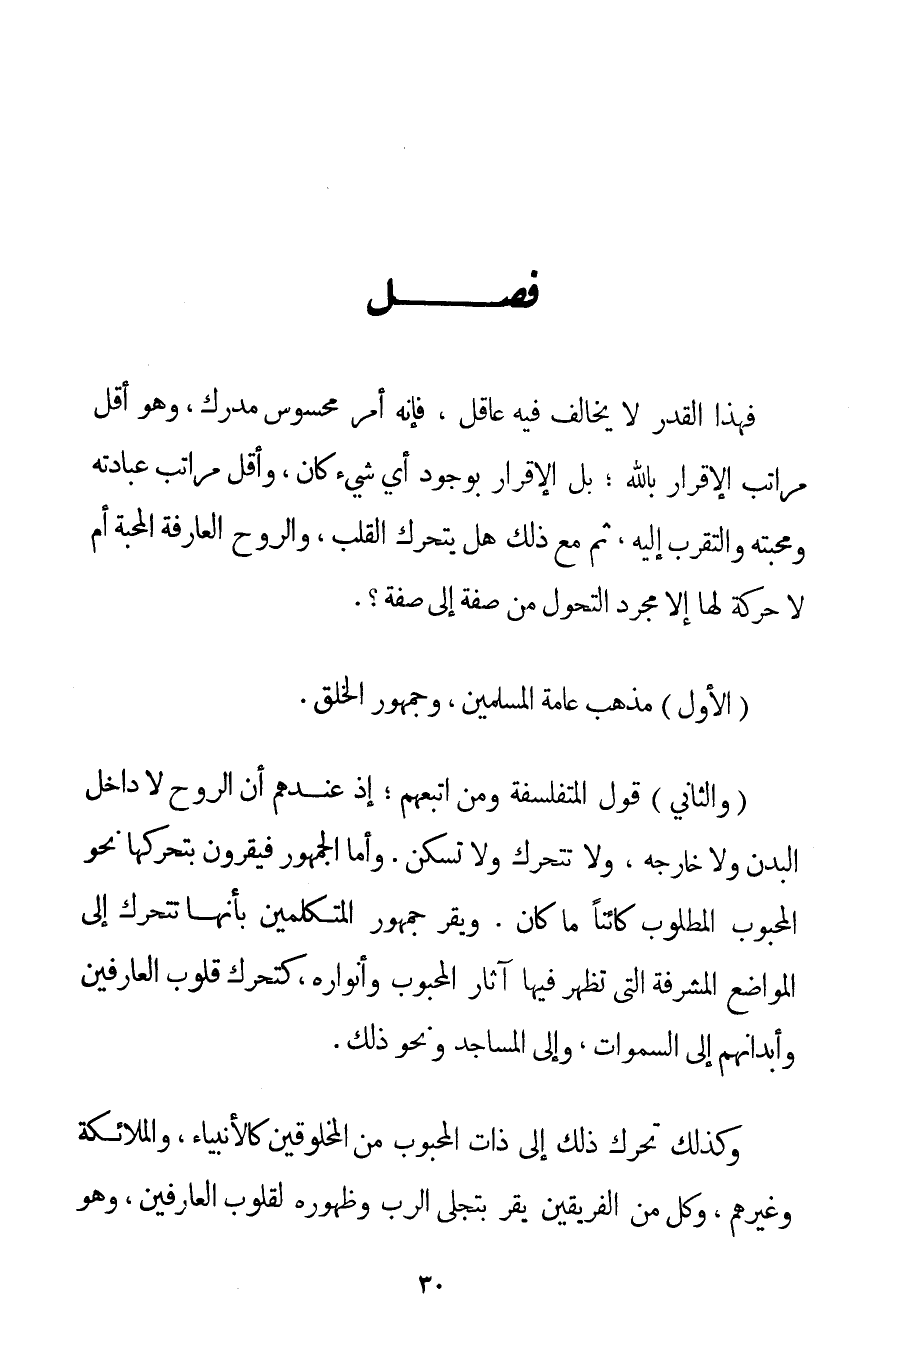 فصـــــــل
فهذا القدر لا يخالف فيه عاقل ، فإنه أمر محسوس مدرك ، وهو أقل
مراتب الإقرار بالله ؛ بل الإقرار بوجود أي شيء كان ، وأقل مراتب عبادته
ومحبته والتقرب إليه ، ثم مع ذلك هل يتحرك القلب ، والروح العارفة المحبة أم
لا حركة لها إلا مجرد التحول من صفة إلى صفة ؟ .
( الأول ) مذهب عامة المسلمين ، وجمهور الخلق .
( والثاني ) قول المتفلسفة ومن اتبعهم ؛ إذ عنـــدهم أن الروح لا داخل
البدن ولا خارجه ، ولا تتحرك ولا تسكن . وأما الجمهور فيقرون بتحركها نحو
المحبوب المطلوب كائناً ما كان . ويقر جمهور المتـكلمين بأنهـــا تتحرك إلى
المواضع المشرفة التى تظهر فيها آثار المحبوب وأنواره ، كتحرك قلوب العارفين
وأبدانهم إلى السموات ، وإلى المساجد ونحو ذلك .
وكذلك تحرك ذلك إلى ذات المحبوب من المخلوقين كالأنبياء ، والملائـكة
وغيرهم ، وكل من الفريقين يقر بتجلى الرب وظهوره لقلوب العارفين ، وهو
٣٠